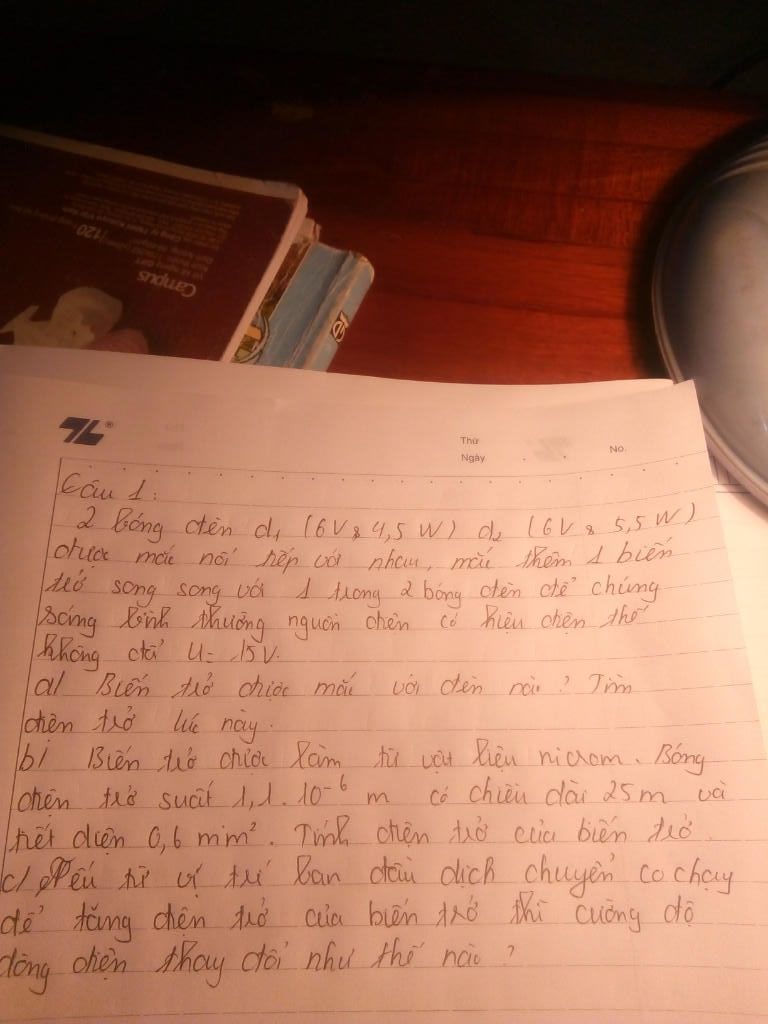 Campus
120
er
TL®
Thứ
Ngày
No.
Câu 1:
2 bóng đèn đ1 (6V & 4,5 W) đ2 (6V & 5,5 W)
được mắc nối tiếp với nhau, mắc thêm 1 biến
trở song song với 1 trong 2 bóng đèn để chúng
sáng bình thường nguồn điện có hiệu điện thế
không đổi U= 15V.
a/ Biến trở được mắc với đèn nào? Tìm
điện trở lúc này.
b/ Biến trở được làm từ vật liệu nicrom. Bóng
điện trở suất 1,1.10⁻⁶ m có chiều dài 25m và
tiết diện 0,6 mm². Tính điện trở của biến trở.
c/ Nếu từ vị trí ban đầu dịch chuyển co chạy
để tăng điện trở của biến trở thì cường độ
dòng điện thay đổi như thế nào?